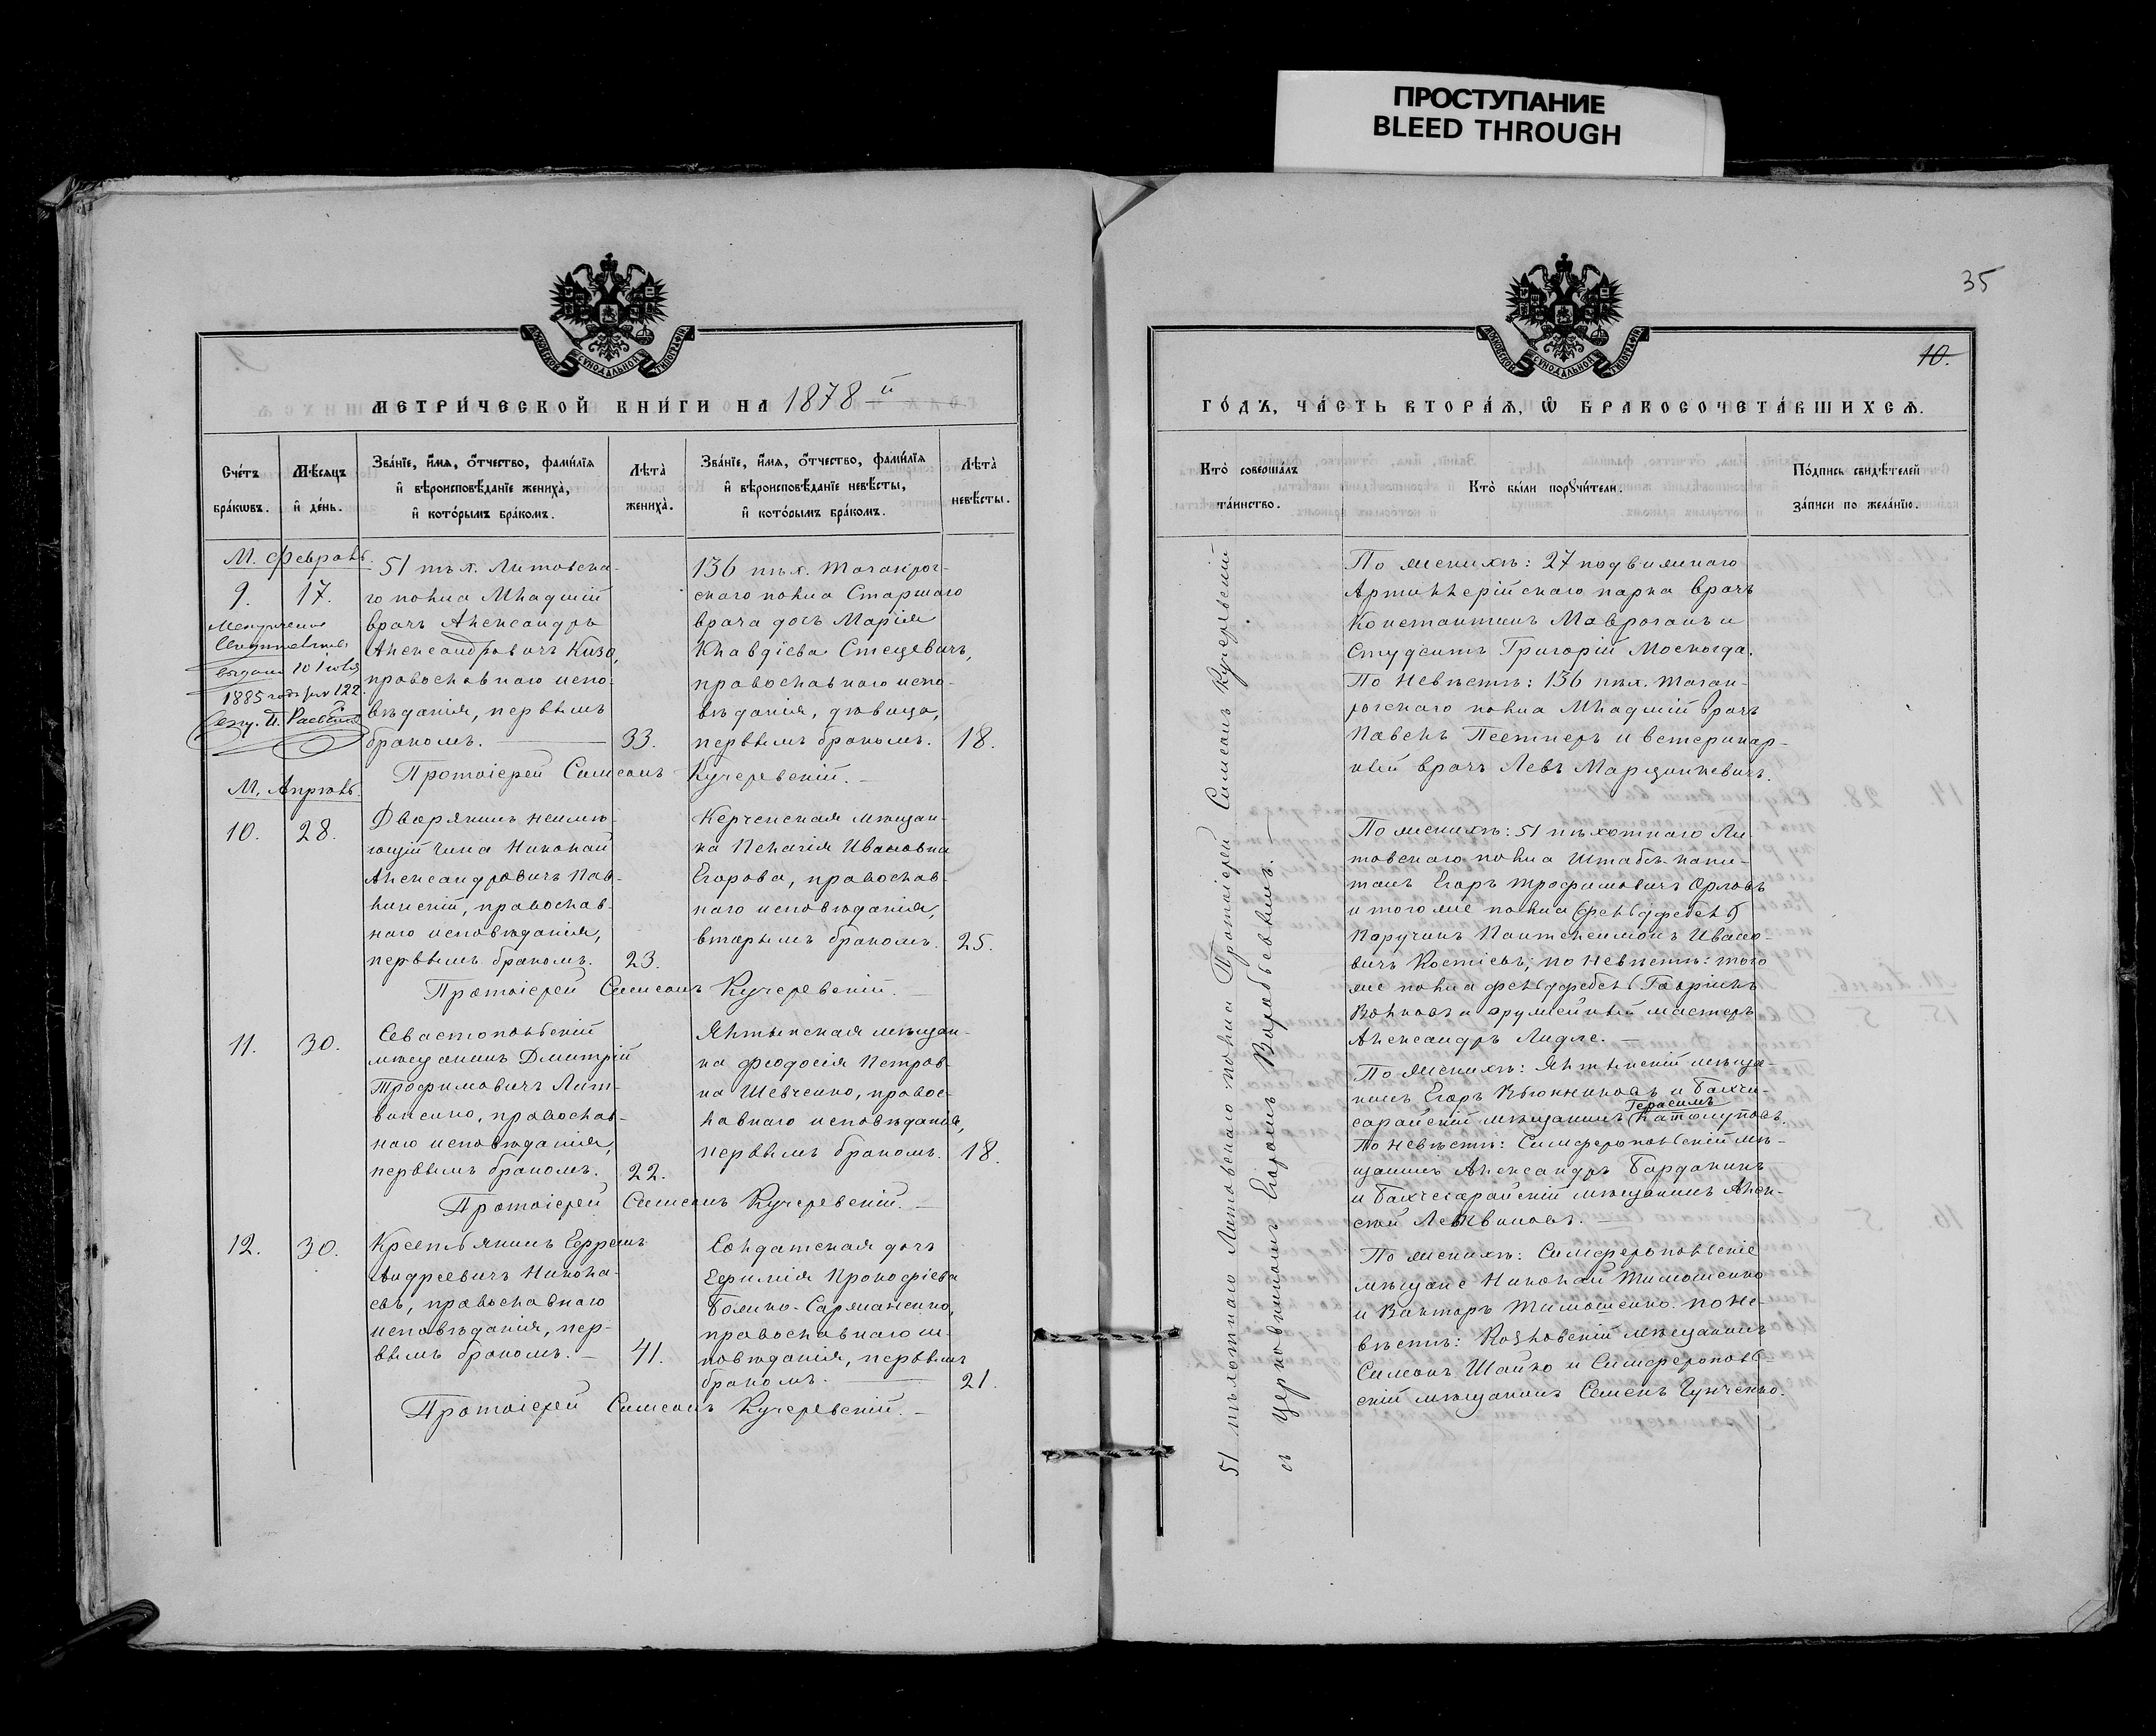 ПРОСТУПАНИЕ
BLEED THROUGH
МЕТРИ́ЧЕСКОЙ КНИ́ГИ НА 1878 й
Сче́тъ бра́кѡвъ.
Мѣ́сяцъ и҆ де́нь.
Зва́нїе, и҆́мя, ѻ҆́тчество, фами́лїя
и҆ вѣроисповѣ́данїе жениха̀,
и҆ кото́рымъ бра́комъ.
Лѣ́та̀ жениха̀.
Зва́нїе, и҆́мя, ѻ҆́тчество, фами́лїя
и҆ вѣроисповѣ́данїе невѣ́сты,
и҆ кото́рымъ бра́комъ.
Лѣ́та̀ невѣ́сты.
М. Февраль.
9. 17.
выдано 10 Іюля
1885 года за № 122.
51 пѣх. Литовска-
го полка Младшій
врачъ Александръ
Александровичъ Кизо,
православнаго испо-
вѣданія, первымъ
бракомъ. 33.
136 пѣх. Таганрог-
скаго полка Старшаго
врача дочь Марія
Клавдіева Стецевичъ,
православнаго испо-
вѣданія, дѣвица,
первымъ бракомъ. 18.
Протоіерей Симеонъ Кучеревскій.
М. Апрѣль.
10. 28.
Дворянинъ неимѣ-
ющій чина Николай
Александровичъ Пав-
линскій, православ-
наго исповѣданія,
первымъ бракомъ. 23.
Керченская мѣщан-
ка Пелагія Ивановна
Егорова, православ-
наго исповѣданія,
вторымъ бракомъ. 25.
Протоіерей Симеонъ Кучеревскій.
11. 30.
Севастопольскій
мѣщанинъ Дмитрій
Трофимовичъ Лит-
виненко, православ-
наго исповѣданія,
первымъ бракомъ. 22.
Ялтинская мѣщан-
ка Феодосія Петров-
на Шевченко, правос-
лавнаго исповѣданія,
первымъ бракомъ. 18.
Протоіерей Симеонъ Кучеревскій.
12. 30.
Крестьянинъ Ефремъ
Андреевичъ Никола-
евъ, православнаго
исповѣданія, пер-
вымъ бракомъ. 41.
Солдатская дочь
Ефимія Прокофіева
Божко-Сарманенко,
православнаго ис-
повѣданія, первымъ
бракомъ. 21.
Протоіерей Симеонъ Кучеревскій.
35
10.
ГО́ДЪ, ЧА́СТЬ ВТОРА́Ѧ, Ѽ БРАКОСОЧЕТА́ВШИХСѦ.
Кто̀ соверша́лъ
та́инство.
Кто̀ бы́ли порꙋчи́тели.
По́дпись свидѣ́телей
за́писи по жела́нїю.
51 пѣхотнаго Литовскаго полка Протоіерей Симеонъ Кучеревскій
съ церковникомъ Егоромъ Воробьевымъ.
По женихѣ: 27 подвижнаго
Артиллерійскаго парка врачъ
Константинъ Мавроганъ и
Студентъ Григорій
По Невѣстѣ: 136 пѣх. Таган-
рогскаго полка Младшій врачъ
Павелъ Пестнеръ и ветеринар-
ный врачъ Левъ Марцинкевичъ.
По женихѣ: 51 пѣхотнаго Ли-
товскаго полка Штабсъ-капи-
танъ Егоръ Трофимовичъ Орловъ
и того же полка (фельдфебель)
Поручикъ Пантелеимонъ Ивано-
вичъ Костіевъ; по невѣстѣ: того
же полка фельдфебель Гавріилъ
Волковъ и оружейный мастеръ
Александръ Лидле.
По Женихѣ: Ялтинскій мѣща-
нинъ Егоръ и Бахчи-
сарайскій мѣщанинъ Герасимъ Католуповъ.
По невѣстѣ: Симферопольскій мѣ-
щанинъ Александръ Бардакинъ
и Бахчесарайскій мѣщанинъ Алек-
сѣй Литвиновъ.
По женихѣ: Симферопольскіе
мѣщане Николай Тимошенко
и Викторъ Тимошенко. по Не-
вѣстѣ: Козловскій мѣщанинъ
Симеонъ Шайко и Симферополь-
скій мѣщанинъ Семенъ Гунченко.